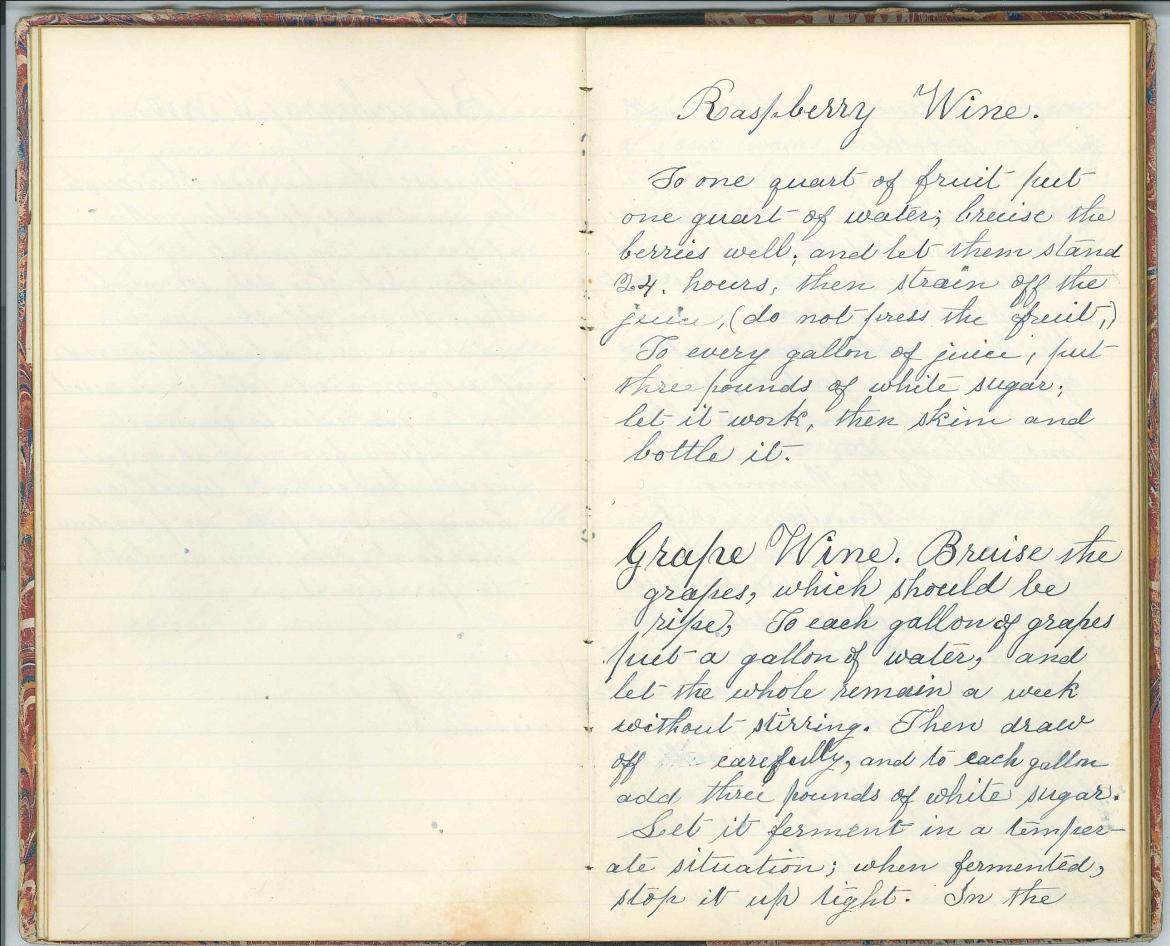 Raspberry Wine.
To one quart of fruit put
one quart of water; bruise the
berries well; and let them stand
24. hours; then strain off the
juice, (do not press the fruit,)
To every gallon of juice; put
three pounds of white sugar;
let it work, then skim and
bottle it.
Grape Wine. Bruise the
grapes, which should be
ripe; To each gallon of grapes
put a gallon of water, and
let the whole remain a week
without stirring. Then draw
off carefully, and to each gallon
add three pounds of white sugar.
Let it ferment in a temper-
ate situation; when fermented,
stop it up tight. In the